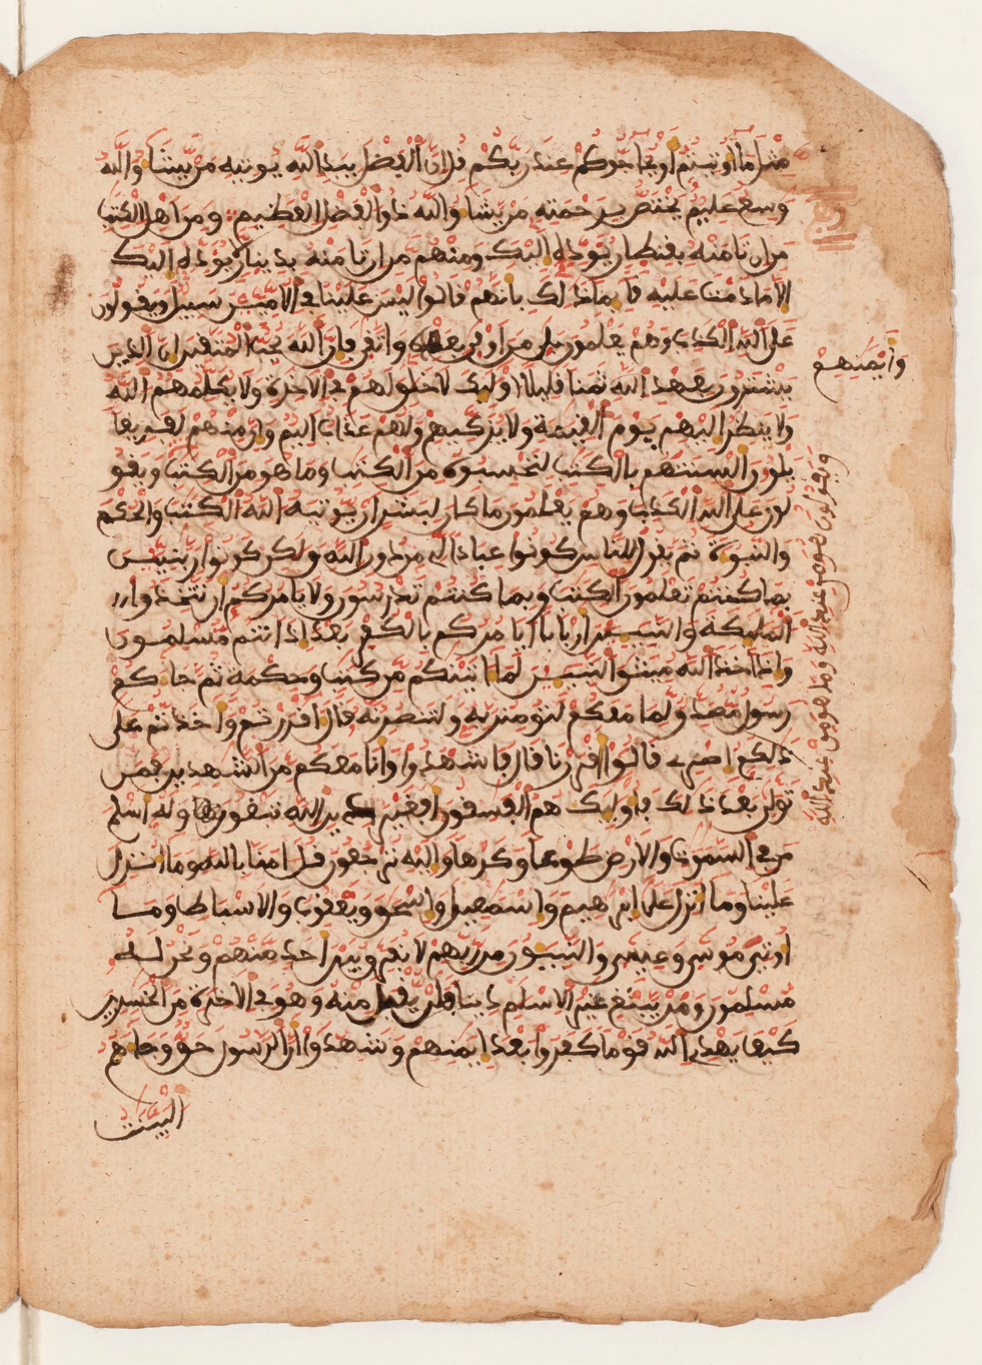 مثل ما أوتيتم أو يحاجوكم عند ربكم قل ان الفضل بيد الله يوتيه من يشا والله
وسع عليم يختص برحمته من يشا والله ذو الفضل العظيم ومن اهل الكتب
من ان تامنه بقنطار يوده إليك ومنهم من ان تامنه بدينار لا يوده اليك
الا ما دمت عليه قايما ذلك بانهم قالوا ليس علينا في الاميين سبيل ويقولون
على الله الكذب وهم يعلمون بلى من اوفى بعهده واتقى فإن الله يحب المتقين ان الذين
يشترون بعهد الله ثمنا قليلا اوليك لا خلق لهم في الاخرة ولا يكلمهم الله
ولا ينظر إليهم يوم القيمة ولا يزكيهم ولهم عذاب اليم وان منهم لفريقا
يلون السنتهم بالكتب لتحسبوه من الكتب وما هو من الكتب ويقو
لون على الله الكذب وهم يعلمون ما كان لبشر ان يوتيه الله الكتب والحكم
والنبوة ثم يقول للناس كونوا عبادا لي من دون الله ولكن كونوا ربنيين
بما كنتم تعلمون الكتب وبما كنتم تدرسون ولا يامركم ان تتخذوا
المليكة والنبيين اربابا ايامركم بالكفر بعد اذ انتم مسلمون
واذ اخذ الله ميثق النبيين لما اتينكم من كتب وحكمة ثم جاكم
رسول مصدق لما معكم لتومنن به ولتنصرنه قال اقررتم واخذتم على
ذلكم اصري قالوا اقررنا قال فاشهدوا وانا معكم من الشهدين فمن
تولى بعد ذلك فاوليك هم الفسقون افغير دين الله تبغون وله اسلم
من في السموت والارض طوعا وكرها واليه ترجعون قل امنا بالله وما انزل
علينا وما انزل على ابرهيم واسمعيل واسحق ويعقوب والاسباط وما
اوتي موسى وعيسى والنبيون من ربهم لا نفرق بين احد منهم ونحن له
مسلمون ومن يبتغ غير الاسلم دينا فلن يقبل منه وهو في الاخرة من الخسرين
كيف يهدي الله قوما كفروا بعد ايمنهم وشهدوا ان الرسول حق وجاهم
البينت
وايمنهم
ويقولون هو من عند الله وما هو من عند الله